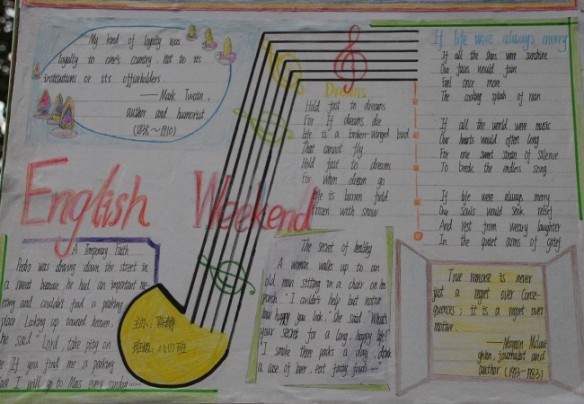 My kind of loyalty was
loyalty to one's country, not to its
institutions or its officeholders.
—— Mark Twain,
author and humorist
(1835~1910)
English Weekend
A Temporary Faith
Pedro was driving down the street in
a sweat because he had an important me
eting and couldn't find a parking
place. Looking up toward heaven,
he said "Lord, take pity on
me. If you find me a parking
I will go to Mass every sunday
Dreams
Hold fast to dreams
For if dreams die
life is a broken-winged bird
That cannot fly
Hold fast to dreams
For when dreams go
life is a barren field
Frozen with snow
The secret of healthy
A woman walks up to an
old man sitting in a chair on his
porch. "I couldn't help but notice
how happy you look." She said. "What's
your secret for a long, happy life?"
"I smoke three packs a day, drink
a case of beer, eat fatty foods
If life were always merry
If all the skies were sunshine
Our faces would fain
Feel once more
The cooling splash of rain
If all the world were music
Our hearts would often long
For one sweet strain of silence
To break the endless song
If life were always merry
Our souls would seek relief
And rest from weary laughter
In the quiet arms of grief
True remorse is never
just a regret over conse-
quences; it is a regret over
motive.
—— Mignon
journalist and
author
班级: 八(1)班